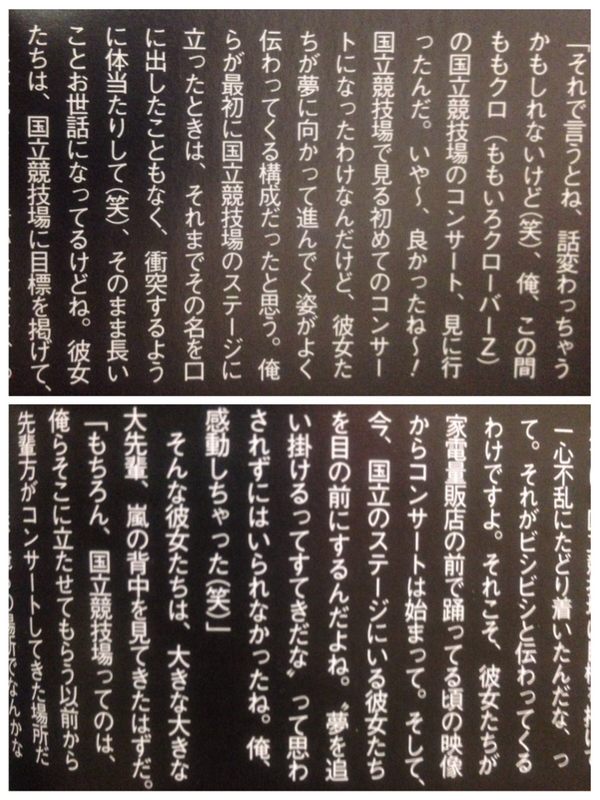 『それで言うとね、話変わっちゃう
かもしれないけど(笑)、俺、この間
ももクロ（ももいろクローバーZ）
の国立競技場のコンサート、見に行
ったんだ。いや〜、良かったね〜！
国立競技場で見る初めてのコンサー
トになったわけなんだけど、彼女た
ちが夢に向かって進んでく姿がよく
伝わってくる構成だったと思う。俺
らが最初に国立競技場のステージに
立ったときは、それまでその名を口
に出したこともなく、衝突するよう
に体当たりして(笑)、そのまま長い
ことお世話になってるけどね。彼女
たちは、国立競技場に目標を掲げて、
一心不乱にたどり着いたんだな、っ
て。それがビシビシと伝わってくる
わけですよ。それこそ、彼女たちが
家電量販店の前で踊ってる頃の映像
からコンサートは始まって。そして、
今、国立のステージにいる彼女たち
を目の前にするんだよね。〝夢を追
い掛けるってすてきだな〟って思わ
されずにはいられなかったね。俺、
感動しちゃった(笑)」
そんな彼女たちは、大きな大きな
大先輩、嵐の背中を見てきたはずだ。
「もちろん、国立競技場ってのは、
俺らそこに立たせてもらう以前から
先輩方がコンサートしてきた場所だ